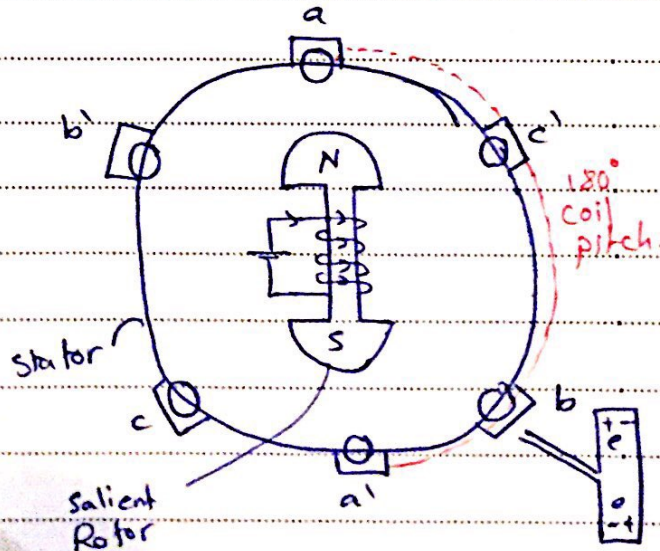 a
b'
c'
N
180°
coil
pitch
S
Stator
c
b
a'
Salient
Rotor
+ -
e
- +